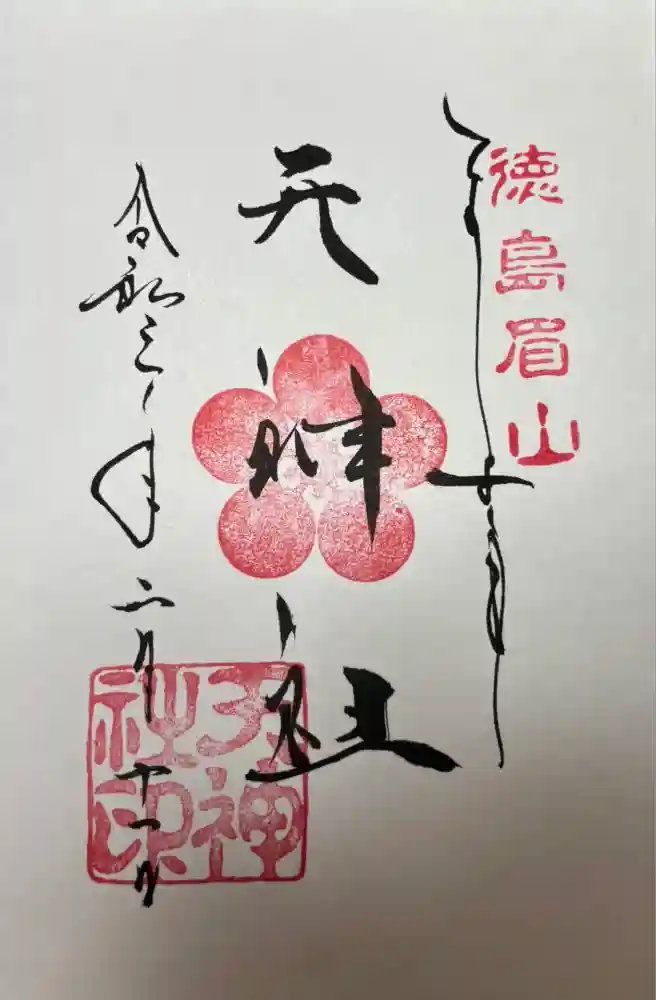 徳島眉山
奉拝
天神社
天神社印
令和三年二月十一日